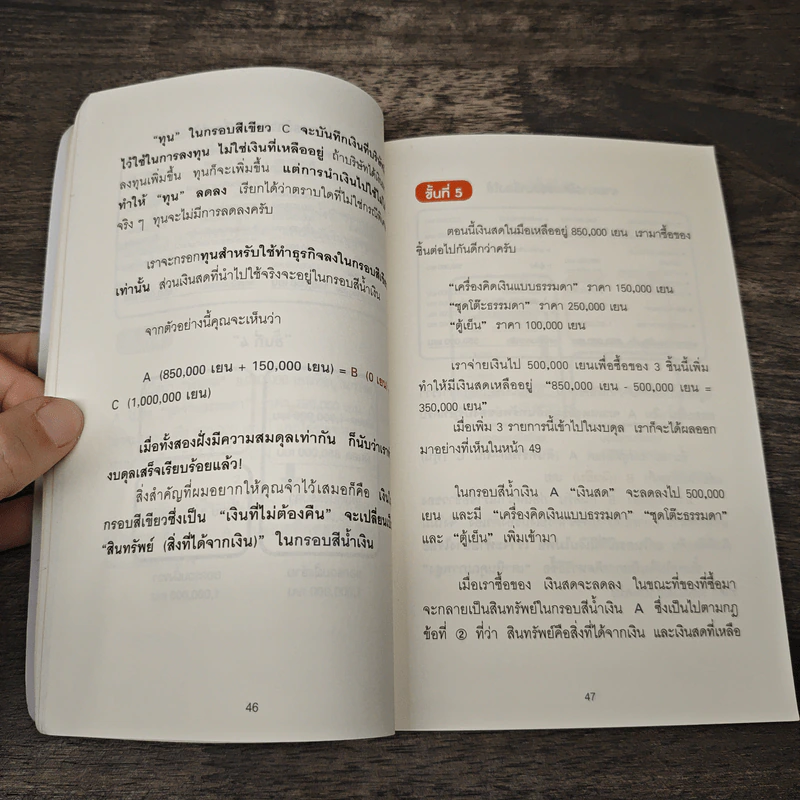 "ทุน" ในกรอบสีเขียว C จะบันทึกเงินที่บริษัท
ไว้ใช้ในการลงทุน ไม่ใช่เงินที่เหลืออยู่ ถ้าบริษัทได้
ลงทุนเพิ่มขึ้น ทุนก็จะเพิ่มขึ้น แต่การนำเงินไปใช้
ทำให้ "ทุน" ลดลง เรียกได้ว่าตราบใดที่ไม่ใช่กรณี
จริง ๆ ทุนจะไม่มีการลดลงครับ
เราจะกรอกทุนสำหรับใช้ทำธุรกิจลงในกรอบสี
เท่านั้น ส่วนเงินสดที่นำไปใช้จริงจะอยู่ในกรอบสีน้ำเงิน
จากตัวอย่างนี้คุณจะเห็นว่า
A (850,000 เยน + 150,000 เยน) = B (0 เยน
C (1,000,000 เยน)
เมื่อทั้งสองฝั่งมีความสมดุลเท่ากัน ก็นับว่าเรา
งบดุลเสร็จเรียบร้อยแล้ว!
สิ่งสำคัญที่ผมอยากให้คุณจำไว้เสมอก็คือ
กรอบสีเขียวซึ่งเป็น "เงินที่ไม่ต้องคืน" จะเปลี่ยน
"สินทรัพย์ (สิ่งที่ได้จากเงิน)" ในกรอบสีน้ำเงิน
46
ขั้นที่ 5
ตอนนี้เงินสดในมือเหลืออยู่ 850,000 เยน เรามาซื้อของ
ชิ้นต่อไปกันดีกว่าครับ
"เครื่องคิดเงินแบบธรรมดา" ราคา 150,000 เยน
"ชุดโต๊ะธรรมดา" ราคา 250,000 เยน
"ตู้เย็น" ราคา 100,000 เยน
เราจ่ายเงินไป 500,000 เยนเพื่อซื้อของ 3 ชิ้นนี้เพิ่ม
ทำให้มีเงินสดเหลืออยู่ "850,000 เยน - 500,000 เยน =
350,000 เยน"
เมื่อเพิ่ม 3 รายการนี้เข้าไปในงบดุล เราก็จะได้ผลออก
มาอย่างที่เห็นในหน้า 49
ในกรอบสีน้ำเงิน A "เงินสด" จะลดลงไป 500,000
เยน และมี "เครื่องคิดเงินแบบธรรมดา" "ชุดโต๊ะธรรมดา"
และ "ตู้เย็น" เพิ่มเข้ามา
เมื่อเราซื้อของ เงินสดจะลดลง ในขณะที่ของที่ซื้อมา
จะกลายเป็นสินทรัพย์ในกรอบสีน้ำเงิน A ซึ่งเป็นไปตามกฎ
ข้อที่ ② ที่ว่า สินทรัพย์คือสิ่งที่ได้จากเงิน และเงินสดที่เหลือ
47